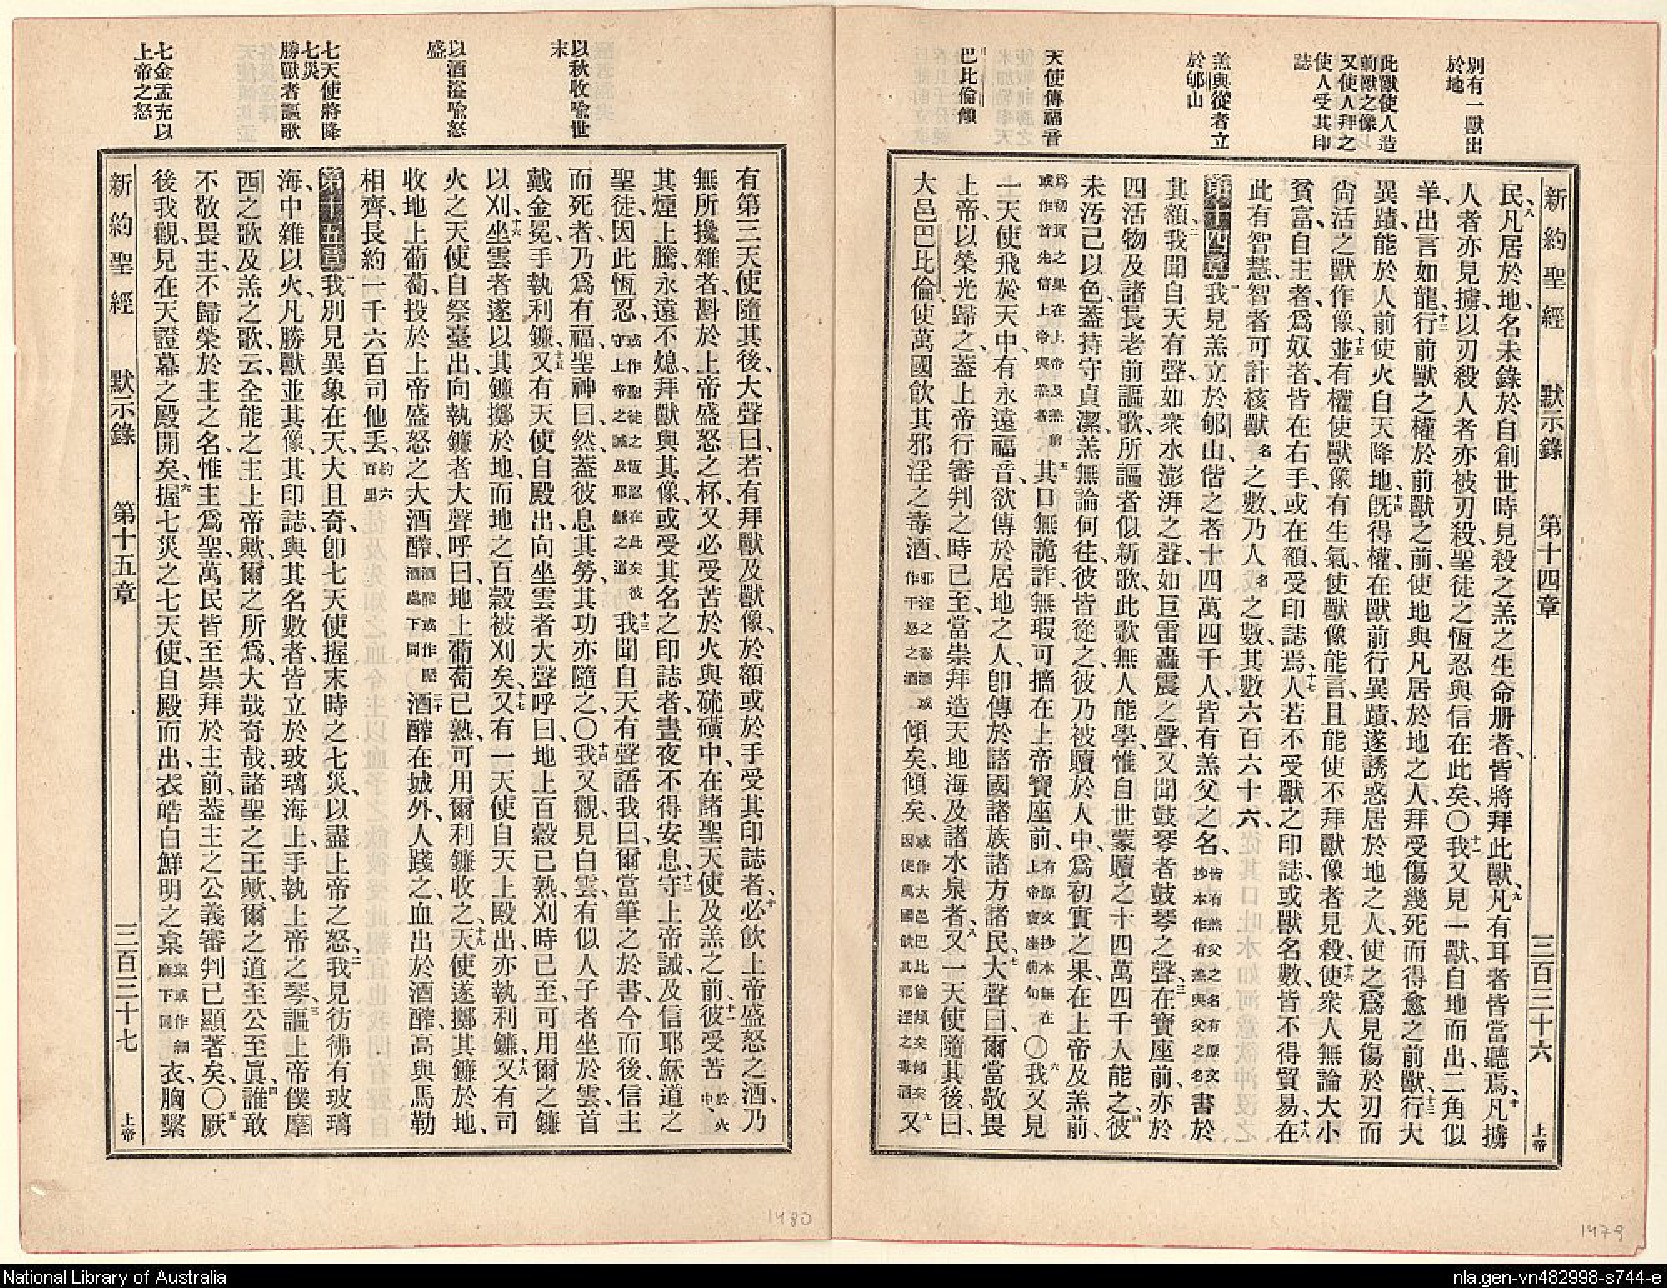 別有一獸出
於地
此獸使人造
前獸之像
又使人拜之
使人受其印
誌
羔與從者立
於郇山
天使傳福音
巴比倫傾
新約聖經 默示錄 第十四章 三百三十六 上帝
民八凡居於地、名未錄於自創世時見殺之羔之生命册者、皆將拜此獸、九凡有耳者皆當聽焉、十凡擄
人者亦見擄、以刃殺人者亦被刃殺、聖徒之恆忍與信在此矣〇十一我又見一獸、自地而出、二角似
羊、出言如龍、十二行前獸之權於前獸之前、使地與凡居於地之人、拜受傷幾死而得愈之前獸、十三行大
異蹟、能於人前使火自天降地、十四旣得權、在獸前行異蹟、遂誘惑居於地之人、使之爲見傷於刃而
尙活之獸作像、十五並有權使獸像有生氣、使獸像能言、且能使不拜獸像者見殺、十六使衆人無論大小
貧富、自主者爲奴者、皆在右手、或在額、受印誌焉、十七人若不受獸之印誌、或獸名數、皆不得貿易、十八在
此有智慧、智者可計核獸名之數、乃人名之數、其數六百六十六、
第十四章一我見羔立於郇山、偕之者十四萬四千人、皆有羔父之名、皆有羔父之名有原文抄本作有羔與父之名書於
其額、二我聞自天有聲、如衆水澎湃之聲、如巨雷轟震之聲、又聞鼓琴者鼓琴之聲、三在寶座前、亦於
四活物及諸長老前謳歌、所謳者似新歌、此歌無人能學、惟自世蒙贖之十四萬四千人能之、四彼
未汚己以色、蓋持守貞潔、羔無論何往、彼皆從之、彼乃被贖於人中、爲初實之果、在上帝及羔前、
爲初實之果在上帝及羔前或作首先信上帝與羔者五其口無詭詐、無瑕可摘、在上帝寶座前、有原文抄本無在上帝寶座前句〇六我又見
一天使飛於天中、有永遠福音、欲傳於居地之人、卽傳於諸國諸族諸方諸民、七大聲曰、爾當敬畏
上帝、以榮光歸之、蓋上帝行審判之時已至、當崇拜造天地海及諸水泉者、八又一天使隨其後曰、
大邑巴比倫、使萬國飲其邪淫之毒酒、邪淫之毒酒或作干怒之酒傾矣傾矣、或作大邑巴比倫傾矣傾矣因使萬國飲其邪淫之毒酒九又
以秋收喻世
末
以酒溢喻怒
盛
七天使將降
七災
勝獸者謳歌
七金盂充以
上帝之怒
有第三天使隨其後、大聲曰、若有拜獸及獸像、於額或於手受其印誌者、十必飲上帝盛怒之酒、乃
無所攙雜者、斟於上帝盛怒之杯、又必受苦於火與硫磺中、在諸聖天使及羔之前、十一彼受苦於火中、
其煙上騰、永遠不熄、拜獸與其像、或受其名之印誌者、晝夜不得安息、十二守上帝誡、及信耶穌道之
聖徒、因此恆忍、或作聖徒之恆忍在此矣彼守上帝之誡及耶穌之道十三我聞自天有聲語我曰、爾當筆之於書、今而後信主
而死者、乃爲有福、聖神曰、然、蓋彼息其勞、其功亦隨之〇十四我又觀、見白雲、有似人子者坐於雲、首
戴金冕、手執利鐮、十五又有天使自殿出、向坐雲者大聲呼曰、地上百穀已熟、刈時已至、可用爾之鐮
以刈、十六坐雲者遂以其鐮擲於地、而地之百穀被刈矣、十七又有一天使、自天上殿出、亦執利鐮、十八又有司
火之天使、自祭臺出、向執鐮者大聲呼曰、地上葡萄已熟、可用爾利鐮收之、十九天使遂擲其鐮於地、
收地上葡萄、投於上帝盛怒之大酒醡、酒醡或作醡酒處下同二十酒醡在城外、人踐之、血出於酒醡、高與馬勒
相齊、長約一千六百司他丟、約六百里
第十五章一我別見異象在天、大且奇、卽七天使握末時之七災、以盡上帝之怒、二我見彷彿有玻璃
海、中雜以火、凡勝獸並其像、其印誌、與其名數者、皆立於玻璃海上、手執上帝之琴、三謳上帝僕摩
西之歌、及羔之歌、云、全能之主上帝歟、爾之所爲、大哉奇哉、諸聖之王歟、爾之道至公至眞、四誰敢
不敬畏主、不歸榮於主之名、惟主爲聖、萬民皆至崇拜於主前、蓋主之公義審判已顯著矣、〇五厥
後我觀、見在天證幕之殿開矣、六握七災之七天使、自殿而出、衣皓白鮮明之枲、枲或作細麻下同衣、胸繫
新約聖經 默示錄 第十五章 三百三十七 上帝
1480
1479
National Library of Australia
nla.gen-vn482998-s744-e